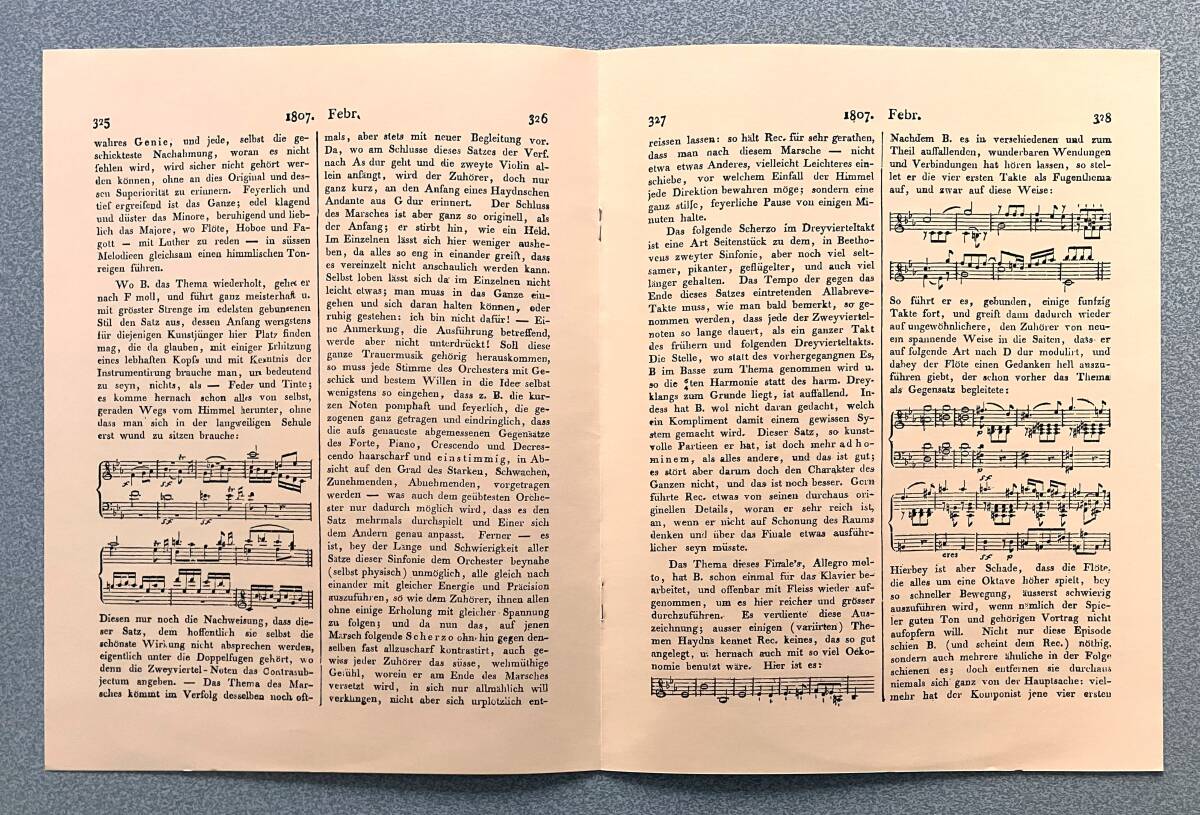 325
1807. Febr.
326
wahres Genie, und jede, selbst die ge-
schickteste Nachahmung, woran es nicht
fehlen wird, wird sicher nicht gehört wer-
den können, ohne an dies Original und des-
sen Superiorität zu erinnern. Feyerlich und
tief ergreifend ist das Ganze; edel klagend
und düster das Minore, beruhigend und lieb-
lich das Majore, wo Flöte, Hoboe und Fa-
gott — mit Luther zu reden — in süssen
Melodieen gleichsam einen himmlischen Ton-
reigen führen.
Wo B. das Thema wiederholt, gehet er
nach F moll, und führt ganz meisterhaft u.
mit grösster Strenge im edelsten gebundenen
Stil den Satz aus, dessen Anfang wenigstens
für diejenigen Kunstjünger hier Platz finden
mag, die da glauben, mit einiger Erhitzung
eines lebhaften Kopfs und mit Kenntnis der
Instrumentirung brauche man, um bedeutend
zu seyn, nichts, als — Feder und Tinte;
es komme hernach schon alles von selbst,
geraden Wegs vom Himmel herunter, ohne
dass man sich in der langweiligen Schule
erst wund zu sitzen brauche:
Diesen nur noch die Nachweisung, dass die-
ser Satz, dem hoffentlich sie selbst die
schönste Wirkung nicht absprechen werden,
eigentlich unter die Doppelfugen gehört, wo
denn die Zweyviertel-Noten das Contrasub-
jectum angeben. — Das Thema des Mar-
sches kömmt im Verfolg desselben noch oft-
mals, aber stets mit neuer Begleitung vor.
Da, wo am Schlusse dieses Satzes der Verf.
nach As dur geht und die zweyte Violin al-
lein anfängt, wird der Zuhörer, doch nur
ganz kurz, an den Anfang eines Haydnschen
Andante aus G dur erinnert. Der Schluss
des Marsches ist aber ganz so originell, als
der Anfang; er stirbt hin, wie ein Held.
Im Einzelnen lässt sich hier weniger aushe-
ben, da alles so eng in einander greift, dass
es vereinzelt nicht anschaulich werden kann.
Selbst loben lässt sich da im Einzelnen nicht
leicht etwas; man muss in das Ganze ein-
gehen und sich daran halten können, oder
ruhig gestehen: ich bin nicht dafür! — Ei-
ne Anmerkung, die Ausführung betreffend,
werde aber nicht unterdrückt! Soll diese
ganze Trauermusik gehörig herauskommen,
so muss jede Stimme des Orchesters mit Ge-
schick und bestem Willen in die Idee selbst
wenigstens so eingehen, dass z. B. die kur-
zen Noten pomphaft und feyerlich, die ge-
zogenen ganz getragen und eindringlich, dass
die aufs genaueste abgemessenen Gegensätze
des Forte, Piano, Crescendo und Decres-
cendo haarscharf und einstimmig, in Ab-
sicht auf den Grad des Starken, Schwachen,
Zunehmenden, Abnehmenden, vorgetragen
werden — was auch dem geübtesten Orche-
ster nur dadurch möglich wird, dass es den
Satz mehrmals durchspielt und Einer sich
dem Andern genau anpasst. Ferner — es
ist, bey der Länge und Schwierigkeit aller
Sätze dieser Sinfonie dem Orchester beynahe
(selbst physisch) unmöglich, alle gleich nach
einander mit gleicher Energie und Präcision
auszuführen, so wie dem Zuhörer, ihnen allen
ohne einige Erholung mit gleicher Spannung
zu folgen; und da nun das, auf jenen
Marsch folgende Scherzo ohnehin gegen den-
selben fast allzuscharf kontrastirt, auch ge-
wiss jeder Zuhörer das süsse, wehmüthige
Gefühl, worein er am Ende des Marsches
versetzt wird, in sich nur allmählich will
verklingen, nicht aber sich urplötzlich ent-
327
1807. Febr.
328
reissen lassen: so hält Rec. für sehr gerathen,
dass man nach diesem Marsche — nicht
etwa etwas Anderes, vielleicht Leichteres ein-
schiebe, vor welchem Einfall der Himmel
jede Direktion bewahren möge; sondern eine
ganz stille, feyerliche Pause von einigen Mi-
nuten halte.
Das folgende Scherzo im Dreyvierteltakt
ist eine Art Seitenstück zu dem, in Beetho-
vens zweyter Sinfonie, aber noch viel selt-
samer, pikanter, geflügelter, und auch viel
länger gehalten. Das Tempo der gegen das
Ende dieses Satzes eintretenden Allabreve-
Takte muss, wie man bald bemerkt, so ge-
nommen werden, dass jede der Zweyviertel-
noten so lange dauert, als ein ganzer Takt
des frühern und folgenden Dreyvierteltakts.
Die Stelle, wo statt des vorhergegangnen Es,
B im Basse zum Thema genommen wird u.
so die 6/4ten Harmonie statt des harm. Drey-
klangs zum Grunde liegt, ist auffallend. In-
dess hat B. wol nicht daran gedacht, welch
ein Kompliment damit einem gewissen Sy-
stem gemacht wird. Dieser Satz, so kunst-
volle Partieen er hat, ist doch mehr ad ho-
minem, als alles andere, und das ist gut;
es stört aber darum doch den Charakter des
Ganzen nicht, und das ist noch besser. Gern
führte Rec. etwas von seinen durchaus ori-
ginellen Details, woran er sehr reich ist,
an, wenn er nicht auf Schonung des Raums
denken und über das Finale etwas ausführ-
licher seyn müsste.
Das Thema dieses Finale's, Allegro mol-
to, hat B. schon einmal für das Klavier be-
arbeitet, und offenbar mit Fleiss wieder auf-
genommen, um es hier reicher und grösser
durchzuführen. Es verdiente diese Aus-
zeichnung; ausser einigen (variirten) The-
men Haydns kennet Rec. keines, das so gut
angelegt, u. hernach auch mit so viel Oeko-
nomie benutzt wäre. Hier ist es:
Nachdem B. es in verschiedenen und zum
Theil auffallenden, wunderbaren Wendungen
und Verbindungen hat hören lassen, so stel-
let er die vier ersten Takte als Fugenthema
auf, und zwar auf diese Weise:
So führt er es, gebunden, einige funfzig
Takte fort, und greift dann dadurch wieder
auf ungewöhnlichere, den Zuhörer von neu-
em spannende Weise in die Saiten, dass er
auf folgende Art nach D dur modulirt, und
dabey der Flöte einen Gedanken hell auszu-
führen giebt, der schon vorher das Thema
als Gegensatz begleitete:
cres
Hierbey ist aber Schade, dass die Flöte,
die alles um eine Oktave höher spielt, bey
so schneller Bewegung, äusserst schwierig
auszuführen wird, wenn nämlich der Spie-
ler guten Ton und gehörigen Vortrag nicht
aufopfern will. Nicht nur diese Episode
schien B. (und scheint dem Rec.) nöthig,
sondern auch mehrere ähnliche in der Folge
schienen es; doch entfernen sie durchaus
niemals sich ganz von der Hauptsache: viel-
mehr hat der Komponist jene vier ersten